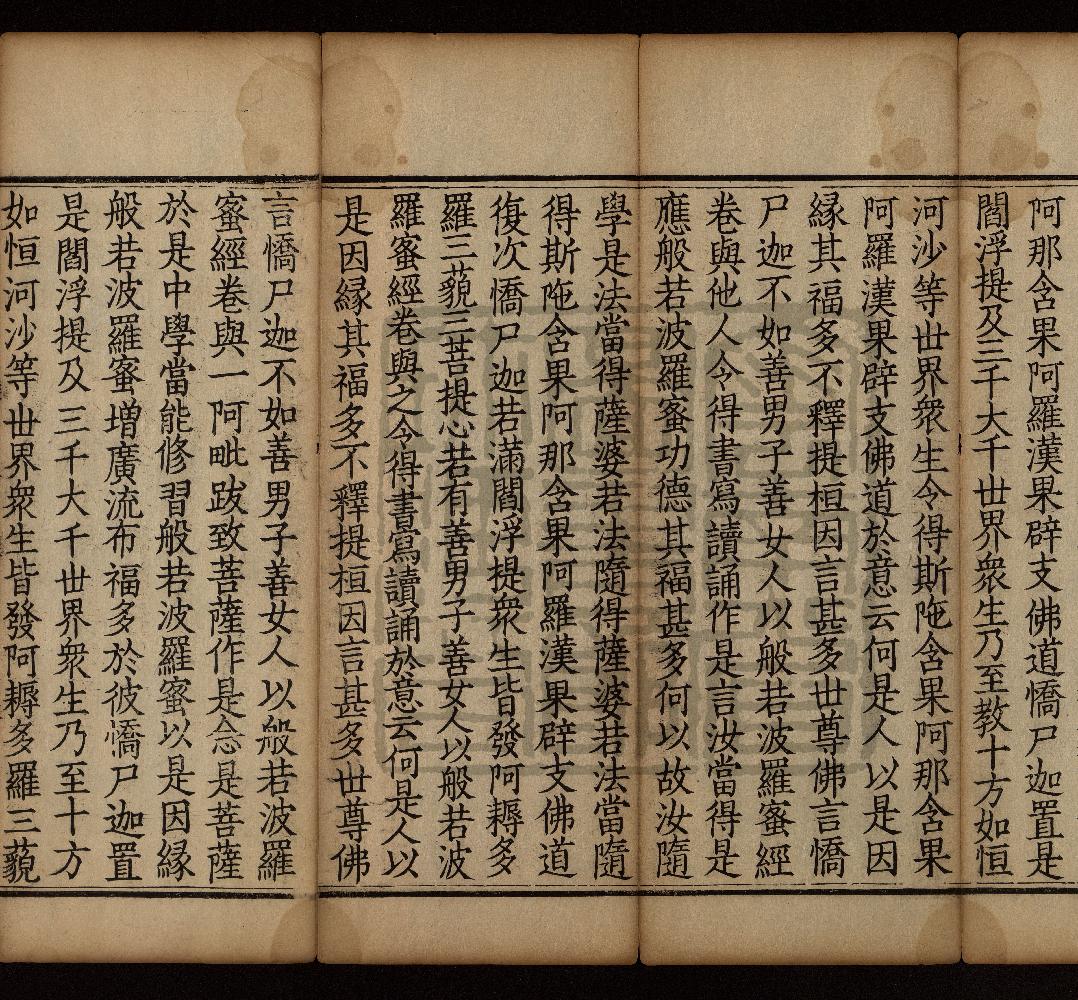 阿那含果阿羅漢果辟支佛道憍尸迦置是
閻浮提及三千大千世界衆生乃至教十方如恒
河沙等世界衆生令得斯陁含果阿那含果
阿羅漢果辟支佛道於意云何是人以是因
縁其福多不釋提桓因言甚多世尊佛言憍
尸迦不如善男子善女人以般若波羅蜜經
卷與他人令得書寫讀誦作是言汝當得是
應般若波羅蜜功德其福甚多何以故汝隨
學是法當得薩婆若法隨得薩婆若法當隨
得斯陁含果阿那含果阿羅漢果辟支佛道
復次憍尸迦若滿閻浮提衆生皆發阿耨多
羅三藐三菩提心若有善男子善女人以般若波
羅蜜經卷與之令得書寫讀誦於意云何是人以
是因縁其福多不釋提桓因言甚多世尊佛
言憍尸迦不如善男子善女人以般若波羅
蜜經卷與一阿毗跋致菩薩作是念是菩薩
於是中學當能修習般若波羅蜜以是因縁
般若波羅蜜増廣流布福多於彼憍尸迦置
是閻浮提及三千大千世界衆生乃至十方
如恒河沙等世界衆生皆發阿耨多羅三藐